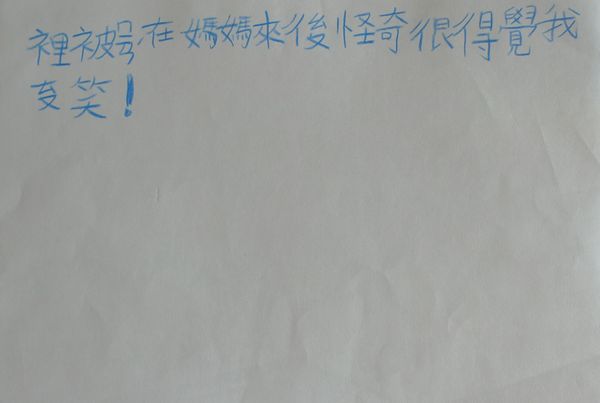 我覺得很奇怪後來媽媽在被裡
笑!